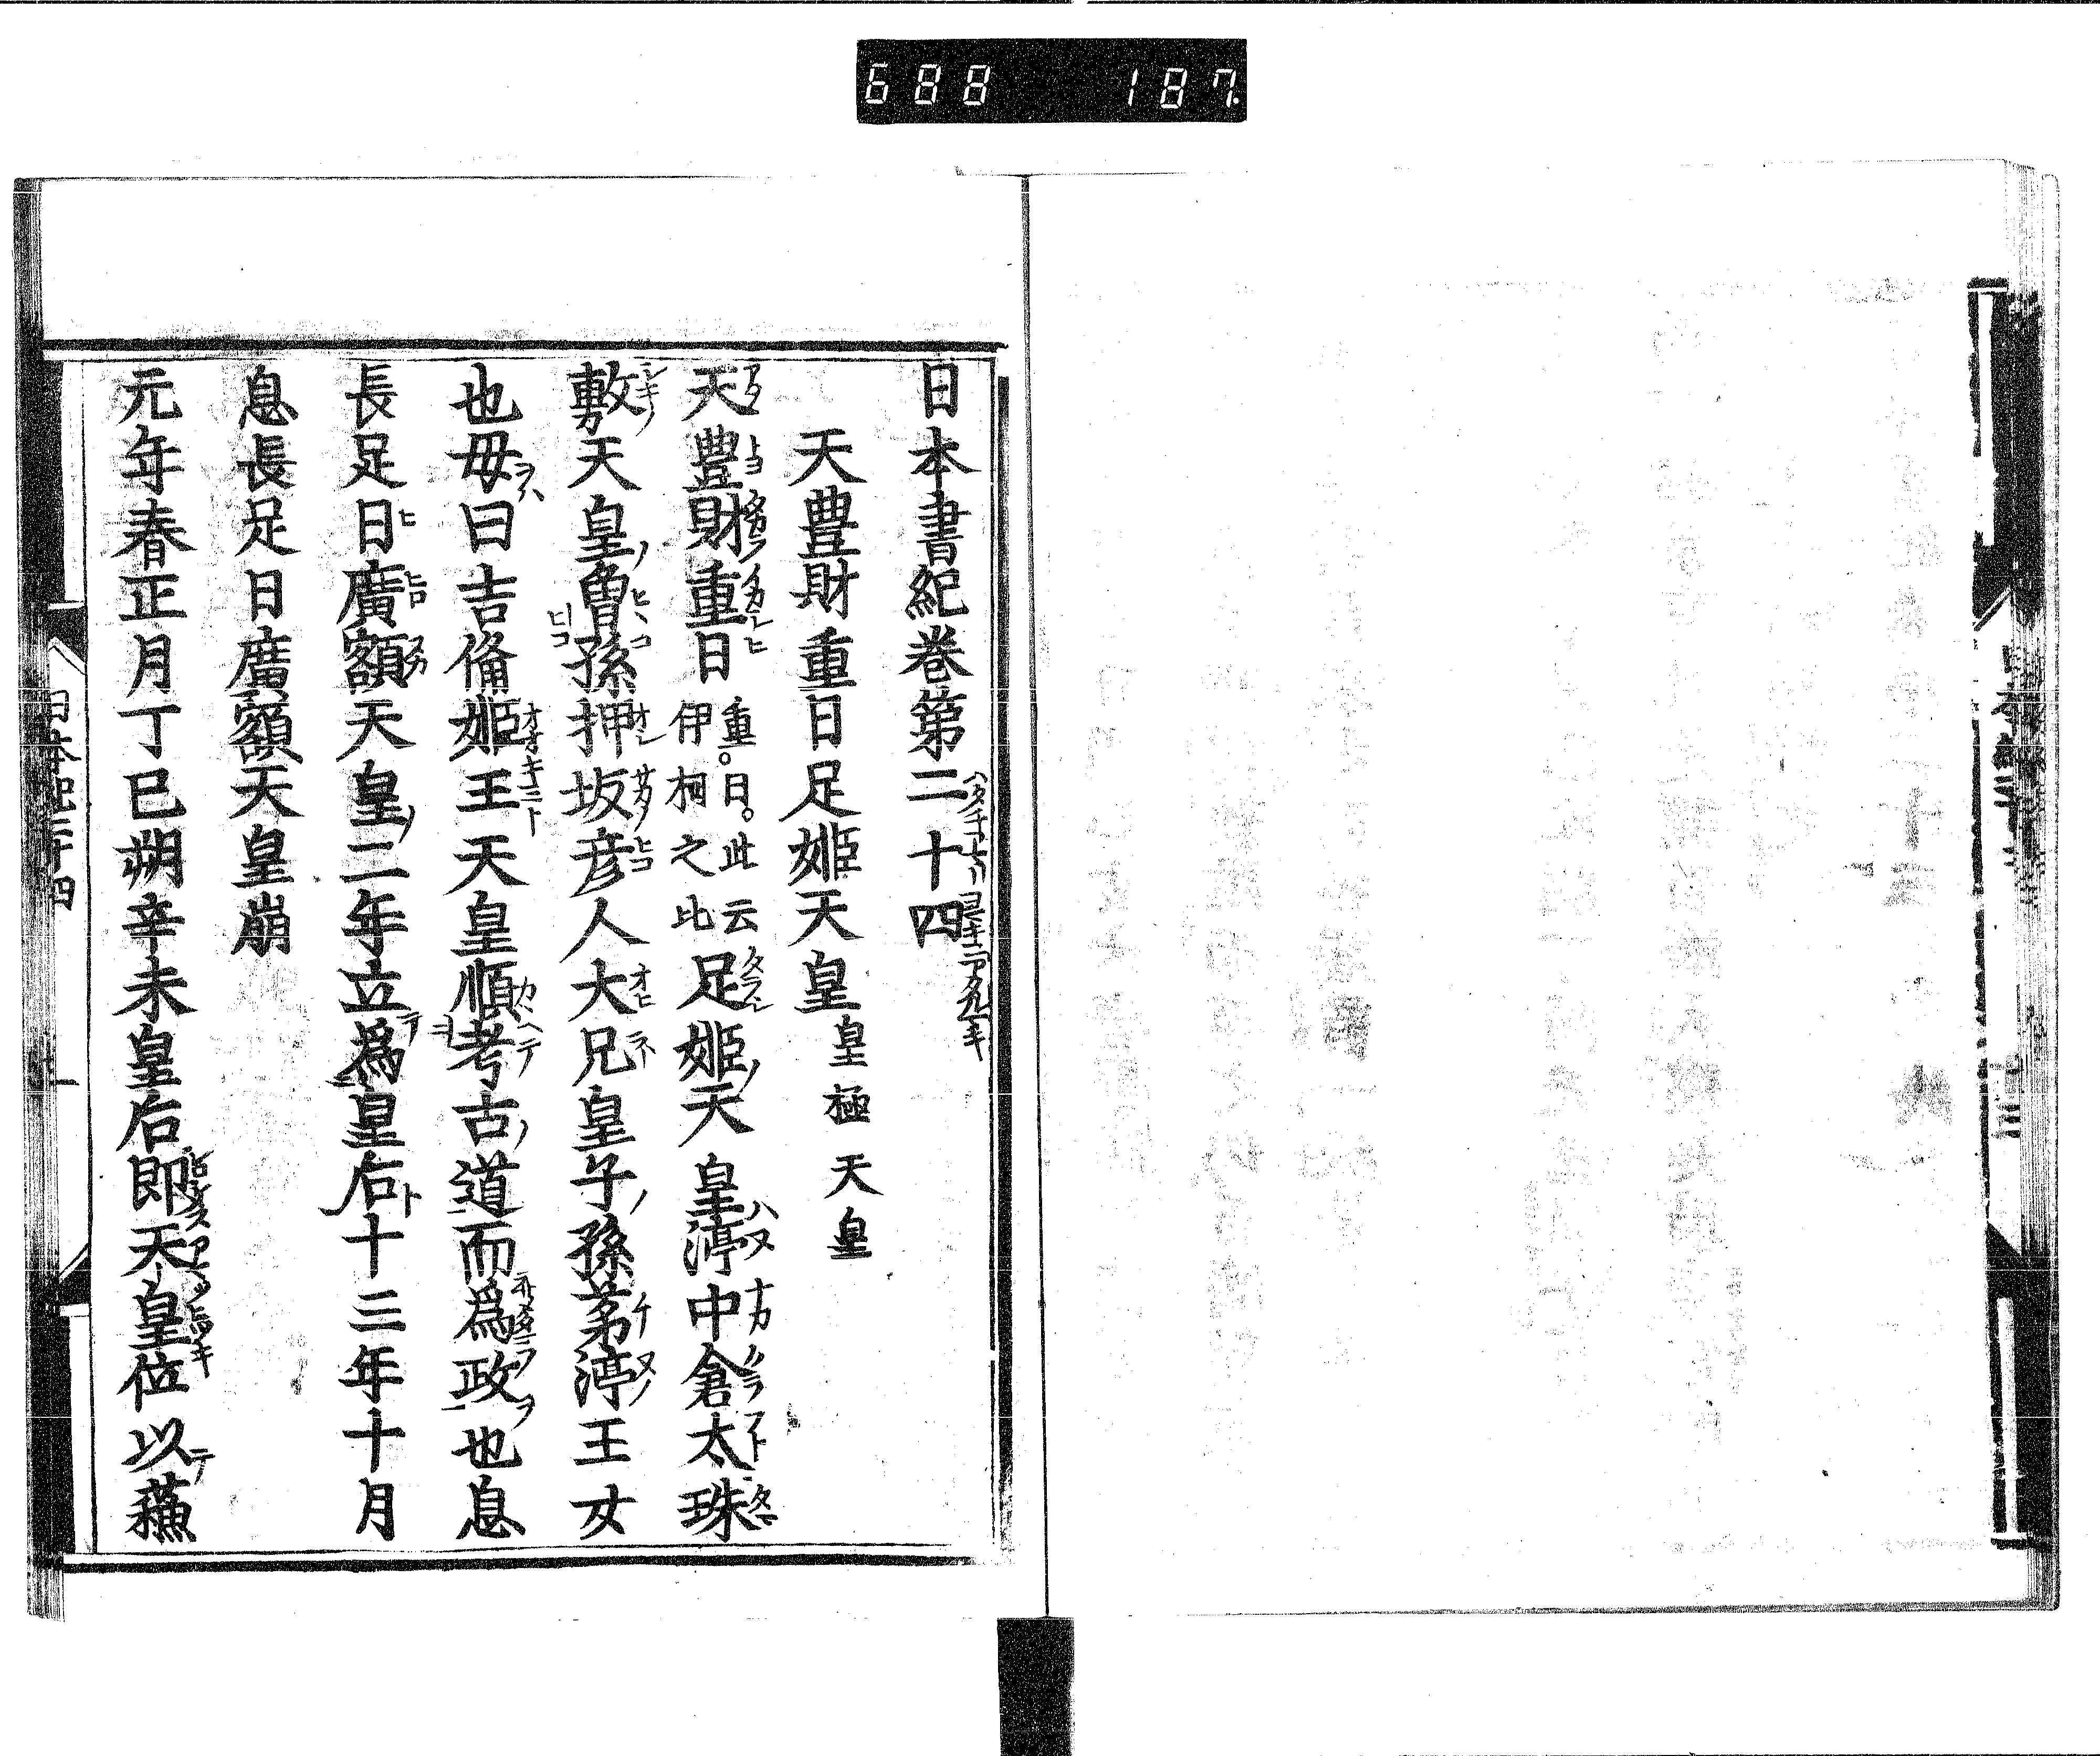 688 187
日本書紀巻第二十四
天豊財重日足姫天皇 皇極天皇
天豊財重日 重。日。此云伊柯之比 足姫天皇渟中倉太珠
敷天皇曽孫押坂彦人大兄皇子孫茅渟王女
也母曰吉備姫王天皇順考古道而為政也息
長足日廣額天皇二年立為皇后十三年十月
息長足日廣額天皇崩
元年春正月丁巳朔辛未皇后即天皇位以蘓